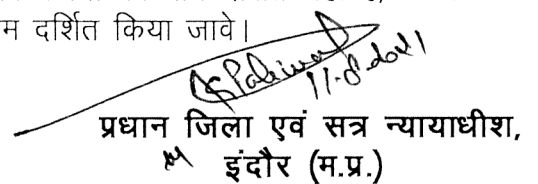 म दर्शित किया जावे।
11.8.2021
प्रधान जिला एवं सत्र न्यायाधीश,
इंदौर (म.प्र.)